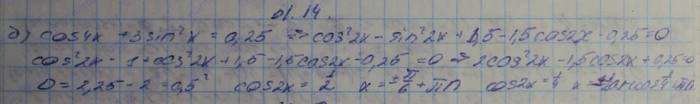 01.14.
д) cos4x + 3sin²x = 0,25 => cos²2x - sin²2x + 1,5 - 1,5cos2x - 0,25=0
cos²2x - 1 + cos²2x + 1,5 - 1,5cos2x - 0,25 = 0 => 2cos²2x - 1,5cos2x + 0,25=0
D = 2,25 - 2 = 0,5² cos2x = 1/2 x = ±π/6 + πn cos2x = 1/4 x = arccos 1/4 πn